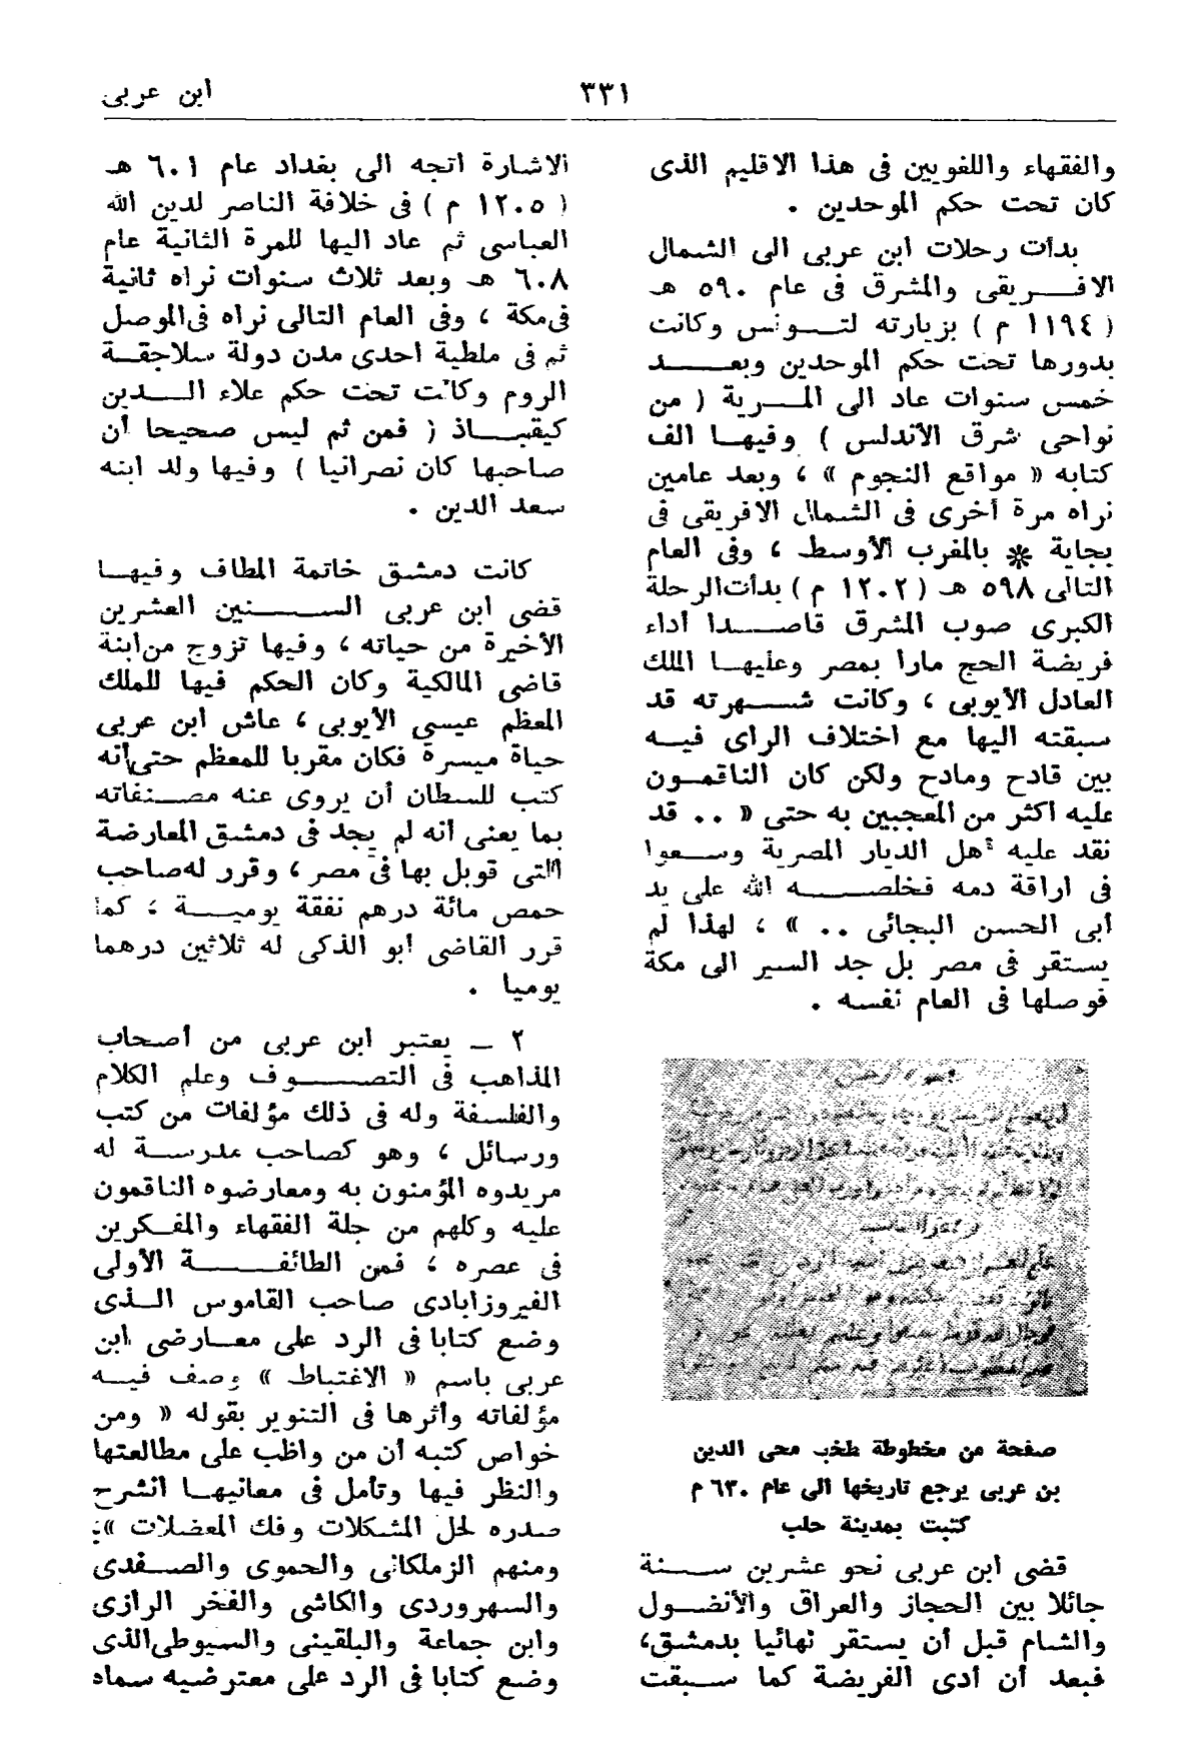 ابن عربى
٣٣١
والفقهاء واللغويين فى هذا الاقليم الذى
كان تحت حكم الموحدين .
بدأت رحلات ابن عربى الى الشمال
الافـــريقى والمشرق فى عام ٥٩٠ هـ
( ١١٩٤ م ) بزيارته لتـــونس وكانت
بدورها تحت حكم الموحدين وبعـــد
خمس سنوات عاد الى المـــرية ( من
نواحى شرق الأندلس ) وفيهـا الف
كتابه « مواقع النجوم » ، وبعد عامين
نراه مرة أخرى فى الشمال الافريقى فى
بجاية * بالمغرب الأوسط ، وفى العام
التالى ٥٩٨ هـ ( ١٢٠٢ م ) بدأت الرحلة
الكبرى صوب المشرق قاصـــدا أداء
فريضة الحج مارا بمصر وعليهـا الملك
العادل الأيوبى ، وكانت شـــهرته قد
سبقته اليها مع اختلاف الراى فيـــه
بين قادح ومادح ولكن كان الناقمـون
عليه أكثر من المعجبين به حتى « . . قد
نقد عليه أهل الديار المصرية وسـعوا
فى اراقة دمه فخلصـــه الله على يد
أبى الحسن البجائى . . » ، لهذا لم
يستقر فى مصر بل جد السير الى مكة
فوصلها فى العام نفسه .
صفحة من مخطوطة بخط محى الدين
بن عربى يرجع تاريخها الى عام ٦٣٠ م
كتبت بمدينة حلب
قضى ابن عربى نحو عشرين ســـنة
جائلا بين الحجاز والعراق والأنضـول
والشام قبل أن يستقر نهائيا بدمشق،
فبعد أن أدى الفريضة كما ســـبقت
الاشارة اتجه الى بغداد عام ٦٠١ هـ
( ١٢٠٥ م ) فى خلافة الناصر لدين الله
العباسى ثم عاد اليها للمرة الثانية عام
٦٠٨ هـ وبعد ثلاث سنوات نراه ثانية
فى مكة ، وفى العام التالى نراه فى الموصل
ثم فى ملطية احدى مدن دولة سلاجقـة
الروم وكانت تحت حكم علاء الـــدين
كيقبـــاذ ( فمن ثم ليس صحيحا أن
صاحبها كان نصرانيا ) وفيها ولد ابنه
سعد الدين .
كانت دمشق خاتمة المطاف وفيهـا
قضى ابن عربى الســـنين العشرين
الأخيرة من حياته ، وفيها تزوج من ابنة
قاضى المالكية وكان الحكم فيها للملك
المعظم عيسى الأيوبى ، عاش ابن عربى
حياة ميسرة فكان مقربا للمعظم حتى أنه
كتب للسطان أن يروى عنه مصـنفاته
بما يعنى أنه لم يجد فى دمشق المعارضة
التى قوبل بها فى مصر ، وقرر له صاحب
حمص مائة درهم نفقة يوميـــة ، كما
قرر القاضى أبو الذكى له ثلاثين درهما
يوميا .
٢ ـ يعتبر ابن عربى من أصحاب
المذاهب فى التصـــوف وعلم الكلام
والفلسفة وله فى ذلك مؤلفات من كتب
ورسائل ، وهو كصاحب مدرسـة له
مريدوه المؤمنون به ومعارضوه الناقمون
عليه وكلهم من جلة الفقهاء والمفـكرين
فى عصره ، فمن الطائفـــة الأولى
الفيروزابادى صاحب القاموس الـذى
وضع كتابا فى الرد على معـارضى ابن
عربى باسم « الاغتباط » وصف فيـه
مؤلفاته وأثرها فى التنوير بقوله « ومن
خواص كتبه أن من واظب على مطالعتها
والنظر فيها وتأمل فى معانيهـا انشرح
صدره لحل المشكلات وفك المعضلات »؛
ومنهم الزملكانى والحموى والصـفدى
والسهروردى والكاشى والفخر الرازى
وابن جماعة والبلقينى والسيوطى الذى
وضع كتابا فى الرد على معترضيه سماه